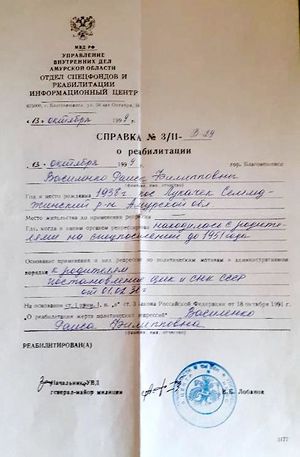 МВД РФ
УПРАВЛЕНИЕ
ВНУТРЕННИХ ДЕЛ
АМУРСКОЙ ОБЛАСТИ
ОТДЕЛ СПЕЦФОНДОВ И
РЕАБИЛИТАЦИИ
ИНФОРМАЦИОННЫЙ ЦЕНТР
"13" октября 1999 г.
СПРАВКА № 3/П-
о реабилитации
"13" октября 1999 г. гор. Благовещенск
Василенко Филипповны
Год и место рождения 1938 г. пос Лукачек Селемд-
жинский р-н Амурской обл.
Место жительства до применения репрессии
Где, когда и каким органом репрессирована находилась с родите-
лями на спецпоселении до 1951 года
Основание применения и вид репрессии по политическим мотивам в административном
порядке к родителям
постановление ЦИК и СНК СССР
от 01.02.30г
На основании ст. 3 Закона Российской Федерации от 18 октября 1991 г.
"О реабилитации жертв политических репрессий" Василенко
Филипповна
(фамилия, имя, отчество)
РЕАБИЛИТИРОВАН(А)
Начальник УВД
генерал-майор милиции Лобанов